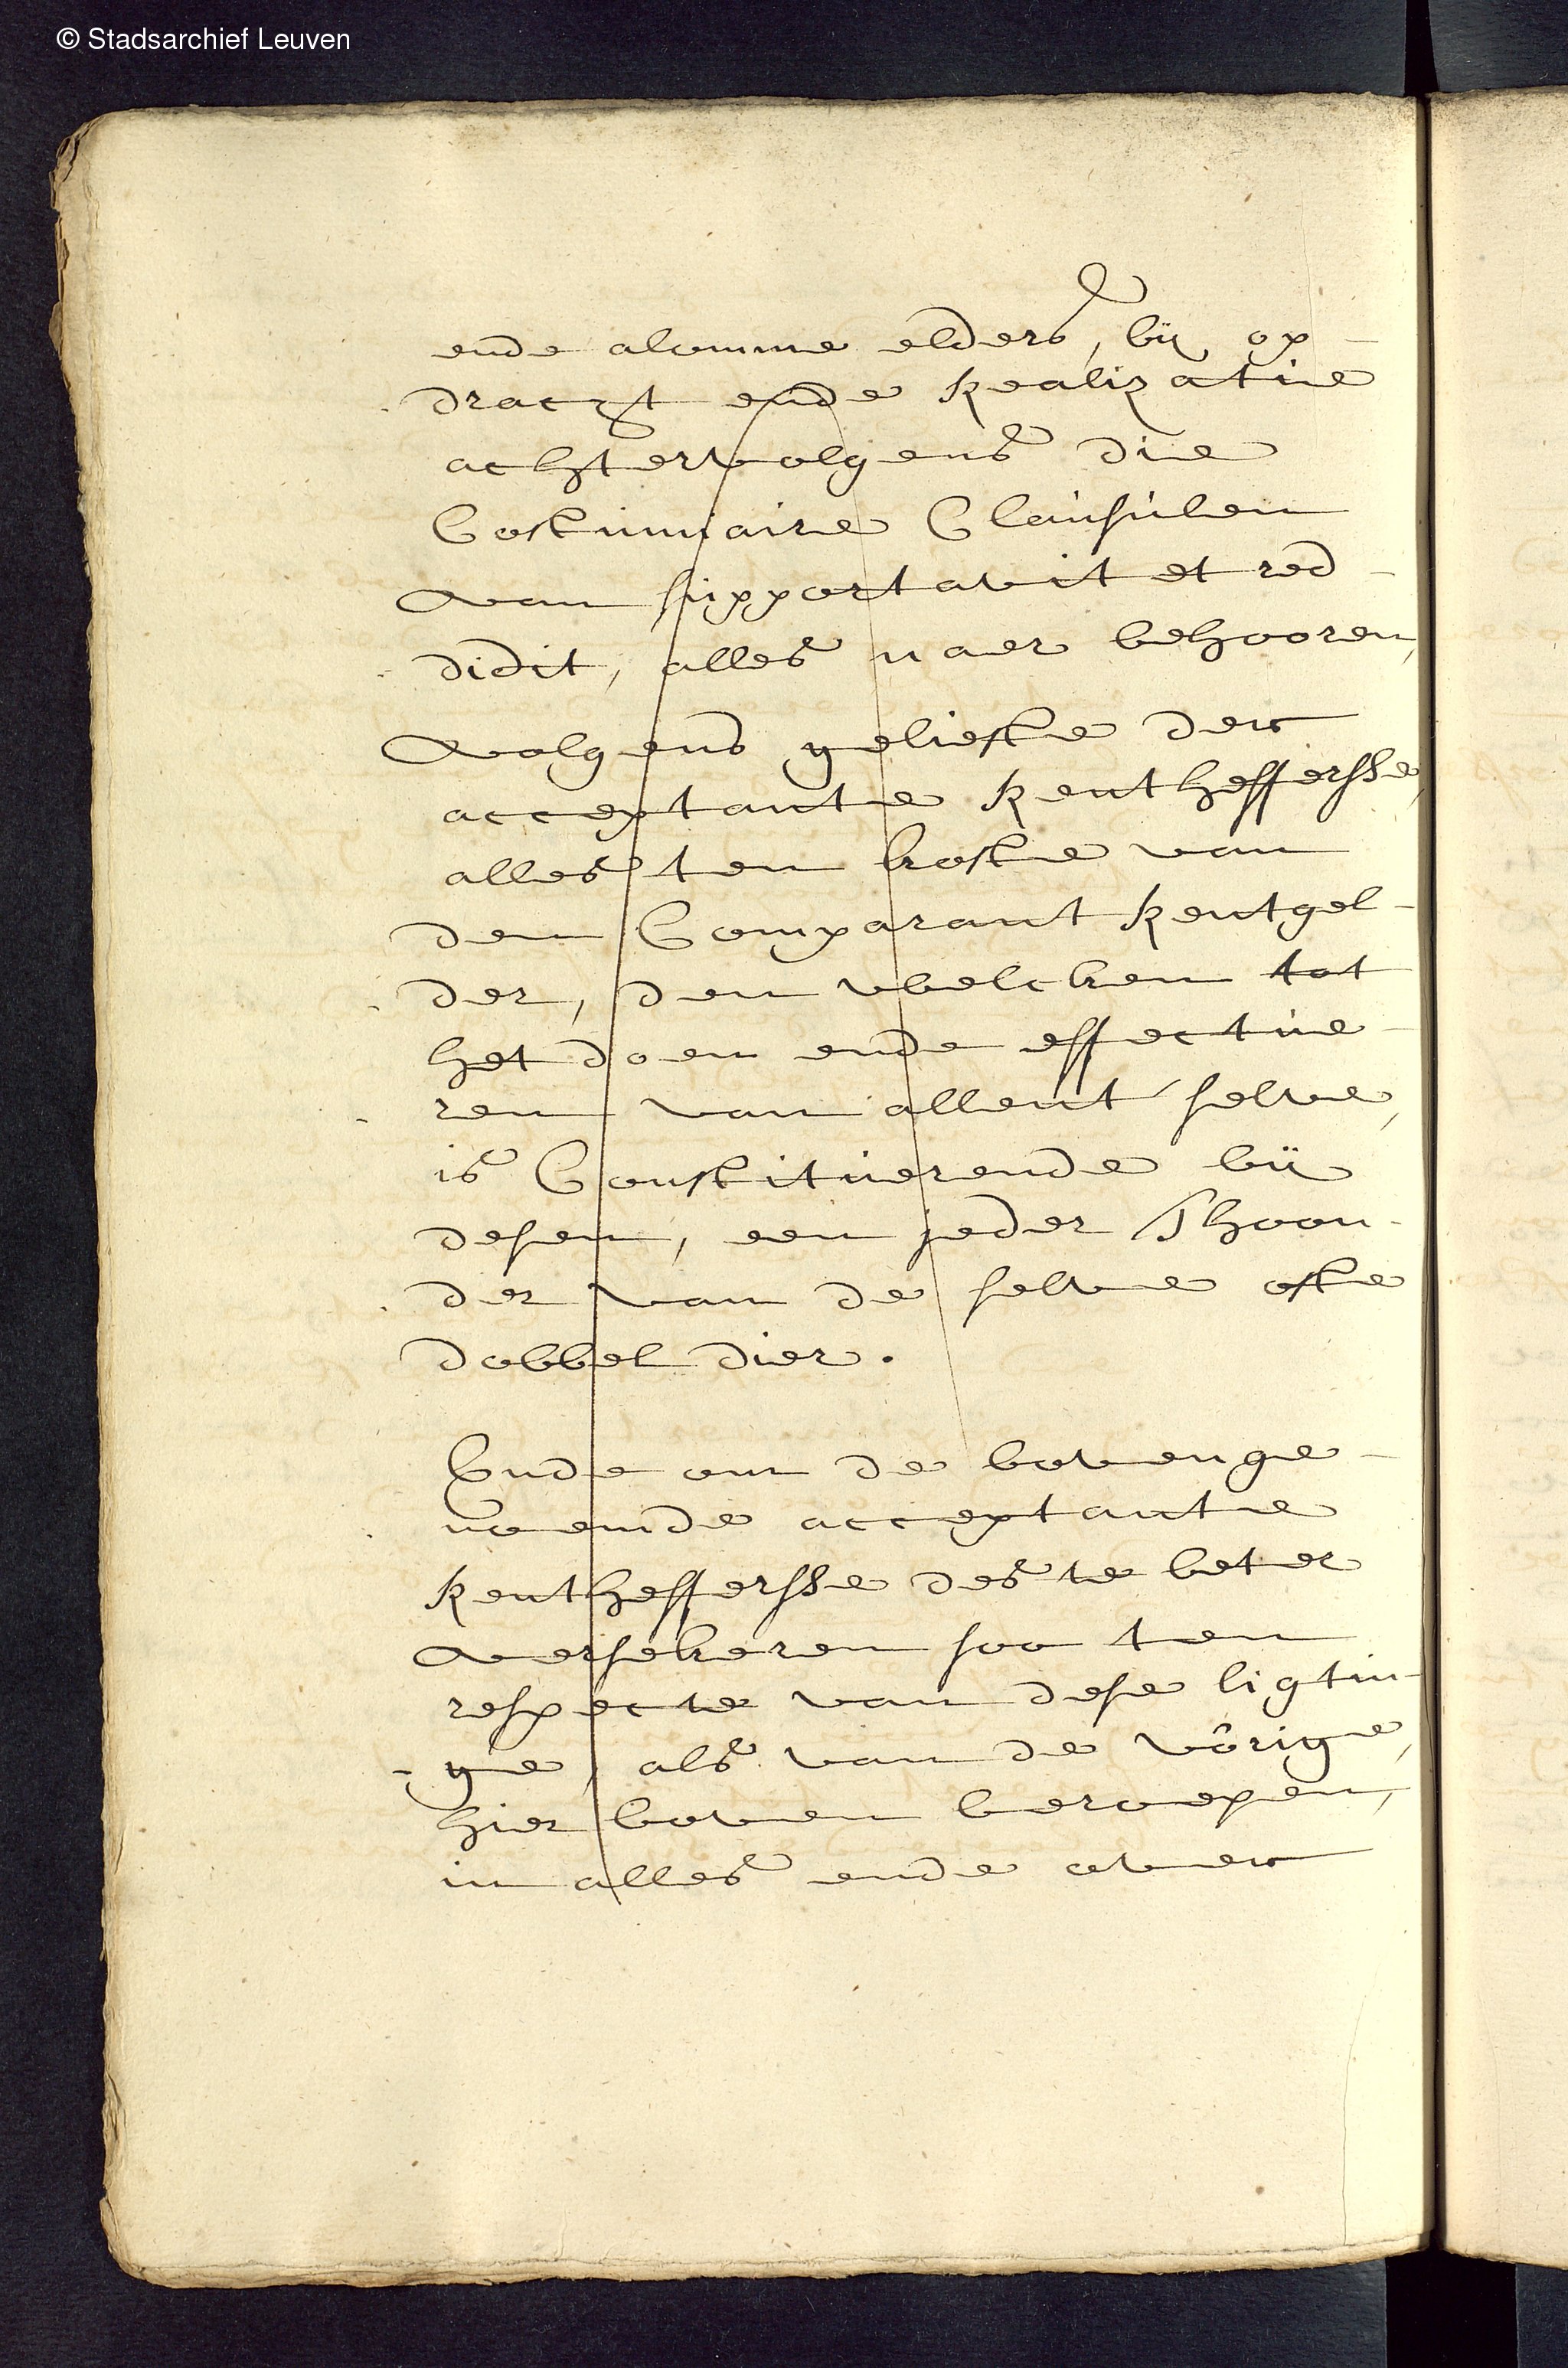 © Stadsarchief Leuven
ende alomme elders, bij op-
dracht ende realizatie
achtervolgens die
Costumiaire Clausulen
van supportavit et red-
didit, alles naer behooren,
volgens geliefte der
acceptante Rentheffersse,
alles ten koste van
den Comparant Rentgel-
der, den welcken tot
het doen ende effectue-
ren van allent selve,
is Constituerende bij
desen, een jeder Thoon-
der van de selve ofte
dobbel dier.
Ende om de bovenge-
noemde acceptante
Rentheffersse des te beter
verseкeren soo ten
respecte van dese ligtin-
ge, als van de vôrige,
hier boven beroepen,
in alles ende over